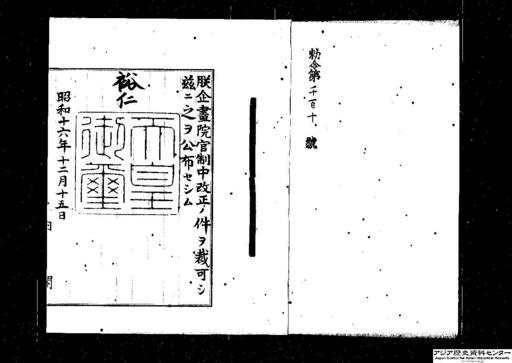 勅令第千百十號
朕企畫院官制中改正ノ件ヲ裁可シ
茲ニ之ヲ公布セシム
裕仁
天皇御璽
昭和十六年十二月十五日
内閣
アジア歴史資料センター
Japan Center for Asian Historical Records